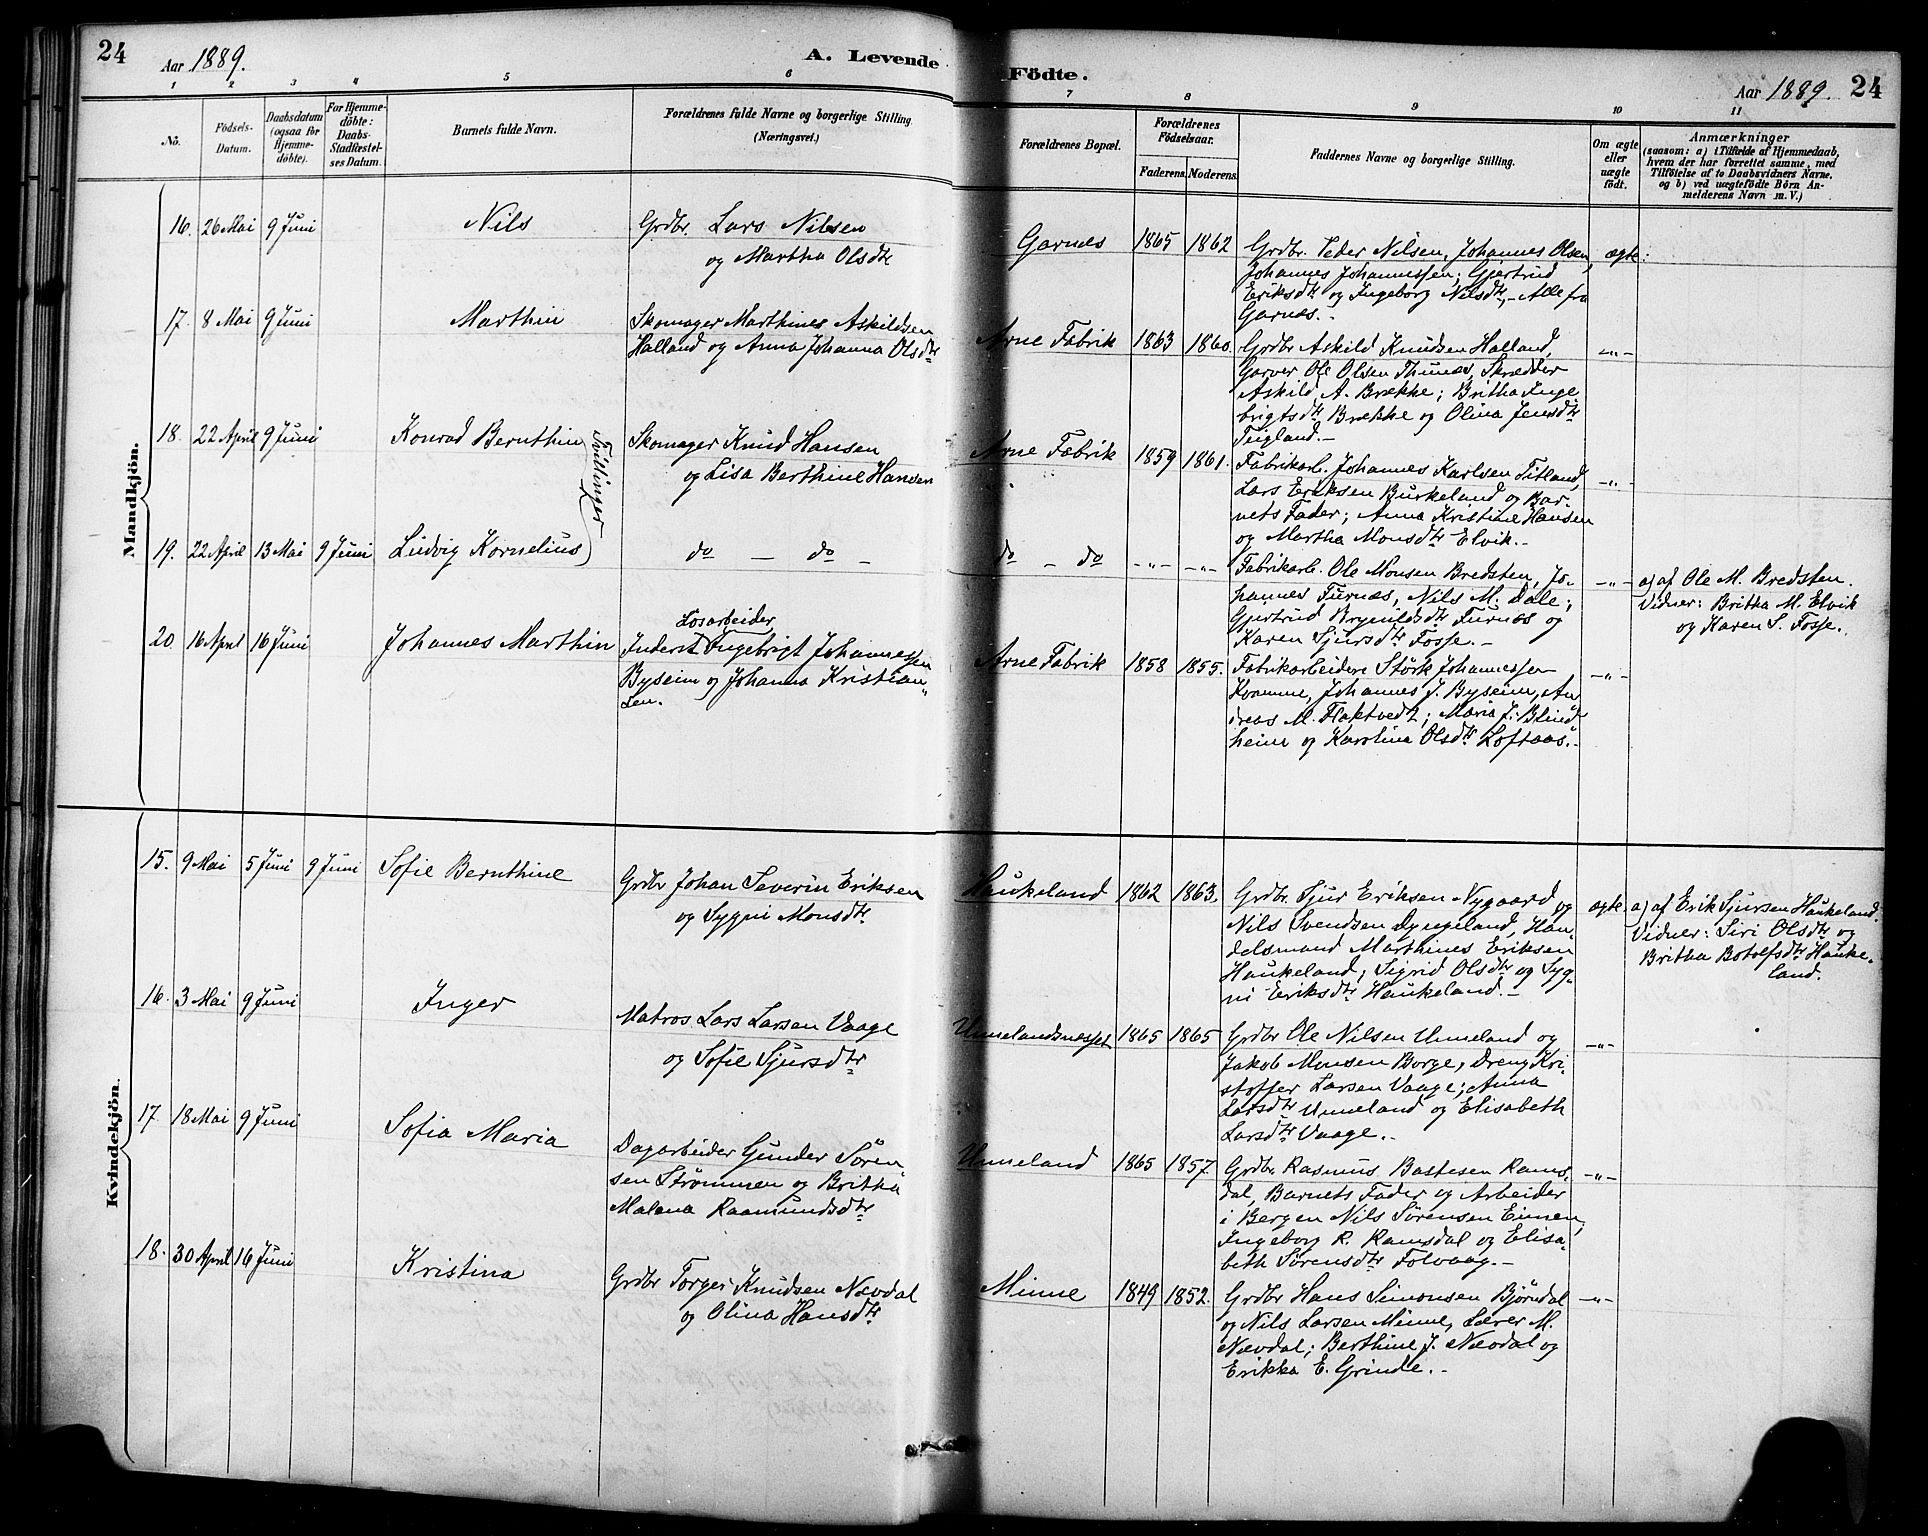 24
Aar 1889.
A. Levende Födte.
Aar 1889. 24
1 2 3 4 5 6 7 8 9 10 11
No.
Födsels-
Datum.
Daabsdatum
(ogsaa for
Hjemme-
döbte).
For Hjemme-
döbte:
Daabs-
Stadfæstel-
ses Datum.
Barnets fulde Navn.
Forældrenes fulde Navne og borgerlige Stilling
(Næringsvei.)
Forældrenes Bopæl.
Forældrenes
Födselsaar.
Faderens. Moderens.
Faddernes Navne og borgerlige Stilling.
Om ægte
eller
uægte
födt.
Anmærkninger
(saasom: a) i Tilfælde af Hjemmedaab,
hvem der har forrettet samme, med
Tilföielse af to Daabsvidners Navne,
og b) ved uægtefödte Börn An-
melderens Navn m. V.)
Mandkjön.
16. 26 Mai 9 Juni
Nils
Grdbr. Lars Nilsen
og Martha Olsdtr
Garnes 1865 1862
Grdbr. Peder Nilsen, Johannes Olsen,
Johannes Johannessen; Gjertrud
Eriksdtr og Ingeborg Nilsdtr, – Alle fra
Garnæs. –
ægte:
17. 8 Mai 9 Juni
Marthin
Skomager Marthines Askildsen
Halland og Anna Johanna Olsdtr
Arne Fabrik 1863 1860.
Grdbr Askild Knudsen Halland,
Garver Ole Olsen Thunæs, Skrædder
Askild A. Brække; Britha Inge
brigtsdtr Brække og Olina Jensdtr
Teigland. –
–„–
18. 22 April 9 Juni
Konrad Bernthin
Tvillinger
Skomager Knud Hansen
og Lisa Berthine Hansen
Arne Fabrik 1859 1861.
Fabrikarb. Johannes Karlsen Titland,
Lars Eriksen Burkeland og Bar-
nets Fader; Anna Kristine Hansen
og Martha Monsdtr Elvik. –
–„–
19. 22 April 13 Mai 9 Juni
Ludvig Kornelius
do – do –
do – do –„– –„–
Fabrikarb. Ole Monsen Bredsten, Jo-
hannes Furnæs, Nils M. Dale;
Gjertrud Brynildsdtr Furnæs og
Karen Sjursdtr Fosse. –
–„–
a) af Ole M. Bredsten.
Vidner: Britha M. Elvik
og Karen S. Fosse.
20. 16 April 16 Juni
Johannes Marthin
Løsarbeider
Inderst Ingebrigt Johannessen
Byseim og Johanna Kristian
sen.
Arne Fabrik 1858 1855.
Fabrikarbeidere Størk Johannessen
Kvamme, Johannes J. Byseim, An
dreas M. Flaktvedt; Maria J. Blind
heim og Karolina Olsdtr Loftaas. –
–„–
Kvindekjön.
15. 9 Mai 5 Juni 9 Juni
Sofie Bernthine
Grdbr Johan Severin Eriksen
og Sygni Monsdtr
Haukeland 1862 1863.
Grdbr. Sjur Eriksen Nygaard og
Nils Svendsen Dyngeland, Han-
delsmand Marthines Eriksen
Haukeland; Sigrid Olsdtr og Syg-
ni Eriksdtr Haukeland. –
ægte.
a) af Erik Sjursen Haukeland.
Vidner: Siri Olsdtr og
Britha Botolfsdtr Hauke-
land.
16. 3 Mai 9 Juni
Inger
Matros Lars Larsen Vaage
og Sofie Sjursdtr
Unnelandsnæsset 1865 1865
Grdbr Ole Nilsen Unneland og
Jakob Monsen Borge, Dreng Kri-
stoffer Larsen Vaage; Anna
Larsdtr Unneland og Elisabeth
Larsdtr Vaage. –
–„–
17. 18 Mai 9 Juni
Sofia Maria
Dagarbeider Gunder Søren-
sen Strømmen og Britha
Malena Raamundsdtr
Unneland 1865 1857.
Grdbr Rasmus Bastesen Rams-
dal, Barnets Fader og Arbeider
i Bergen Nils Sørensen Einen;
Ingeborg R. Ramsdal og Elisa-
beth Sørensdtr Tolvaag. –
–„–
18. 30 April 16 Juni
Kristina
Grdbr Torger Knudsen Nævdal
og Olina Hansdtr
Minne 1849 1852.
Grdbr Hans Simonsen Bjørndal
og Nils Larsen Minne, Lærer M.
Nævdal; Berthine J. Nævdal og
Erikka E. Grinde. –
–„–